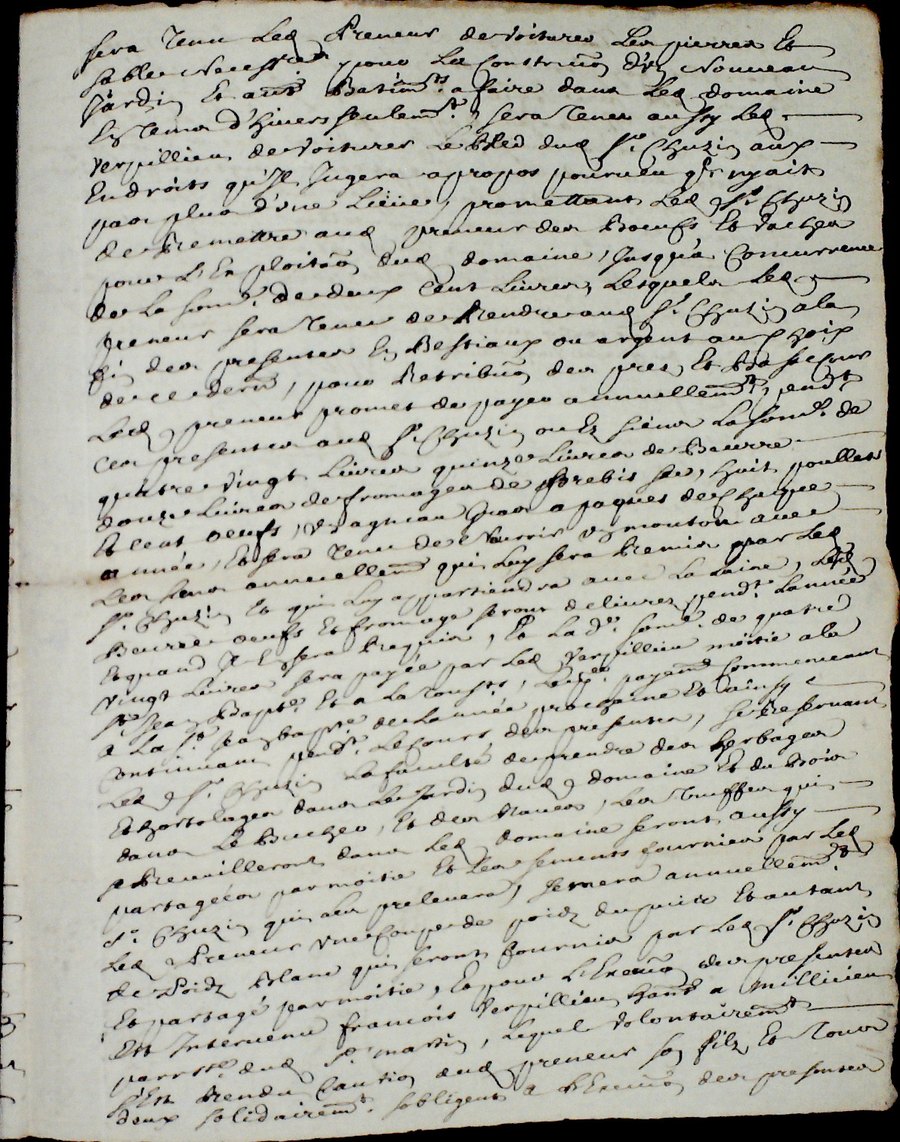 sera tenu led preneur de voiturer les pierres Et
sable necessres pour la construon d'un nouveau
Jardin Et autre Batimts a faire dans led domaine
En tems d'hivers seulemt, sera tenu aussy led
Verpillieu de voiturer le bled dud Sr Chuzin aux
Endroits qu'Il Jugera apropos pourveu qle nyait
pas plus d'une Lieue, promettant led Sr Chuzin
de Remettre aud preneur des Boeufs Et vaches
pour L'Exploitaon dud domaine, Jusqu'a Concurrence
de La some de deux Cent Livres, Lesquels led
preneur sera tenu de Rendre aud Sr Chuzin ala
fin des presentes En Bestiaux ou argent aux Choix
de ce dern, pour Retribuon des pres, Et
Led preneur promet de payer annuellemt, pendt
Ces presentes aud Sr Chuzin ou Es siens La some de
quatre vingt Livres quinze Livres de Beurre
douze Livres de fromages de Brebis sec, huit poullets
Et cent oeufs, Un agneau gras a paques de Chaque
année, Et sera tenu de Nourrir Un mouton avec
Les siens annuellemt qui Luy sera Remis par led
Sr Chuzin Et qui Luy appartiendra avec La Laine, Lesd
Beurre oeufs Et fromage seront delivrez pendt Lannée
Et quand Il En sera Requis, Et Lad. some de quatre
Vingt Livres sera payée par led Verpillieu moitie ala
St Jean Bapte Et a La Toussts, Le per payemt Commencant
a La St Jean baptte de Lannée prochaine Et ainsy
Continuant pendt Le Cours des presentes, se Reservant
Led Sr Chuzin La faculté de prendre des herbages
Et hortolages dans Le Jardin dud domaine Et du Bois
dans Le Bucher, Et des Raves, Les Truffes qui
se Recueilleront dans led domaine seront aussy
partagées par moitie Et Les sements fournies par led
Sr Chuzin qui les prelevera, semera annuellemt
Led Preneur Une Coupe de poidz Et autant
de Poidz Blanc qui seront fournis par led Sr Chuzin
Et partagé par moitie, Et pour L'Execuon des presentes
Est Intervenu francois Verpillieu hant a Millicieu
parrsse dud St martin, Lequel volontairemt
s'Est Rendu Caution dud preneur son fils Et Tous
deux solidairemt sobligent a L'Execuon des presentes